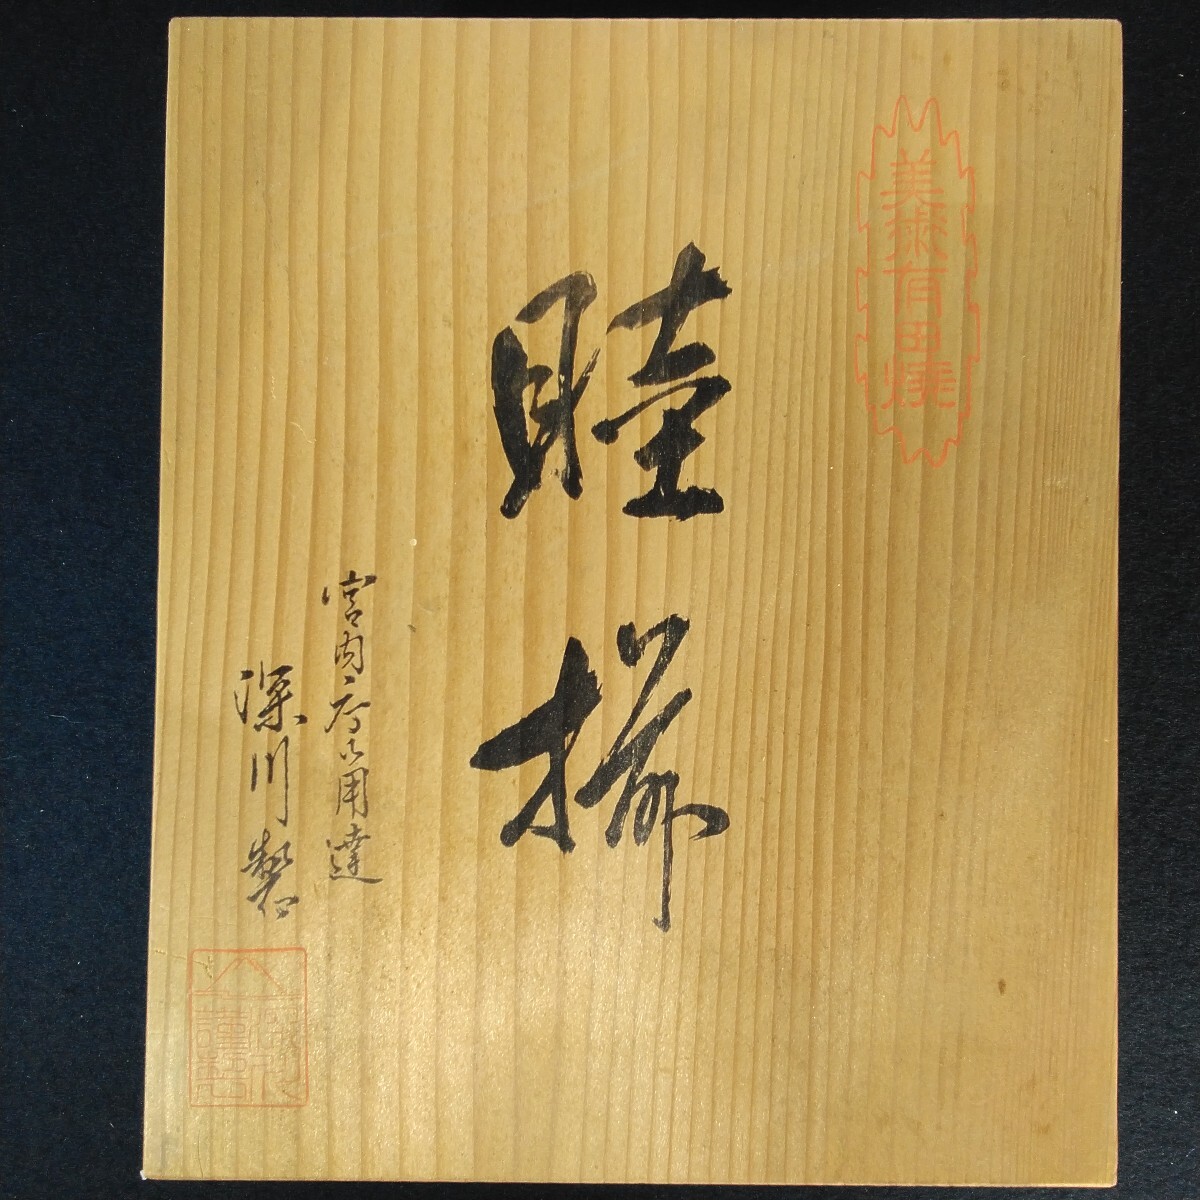 美術有田焼
睦揃
宮内庁御用達
深川製